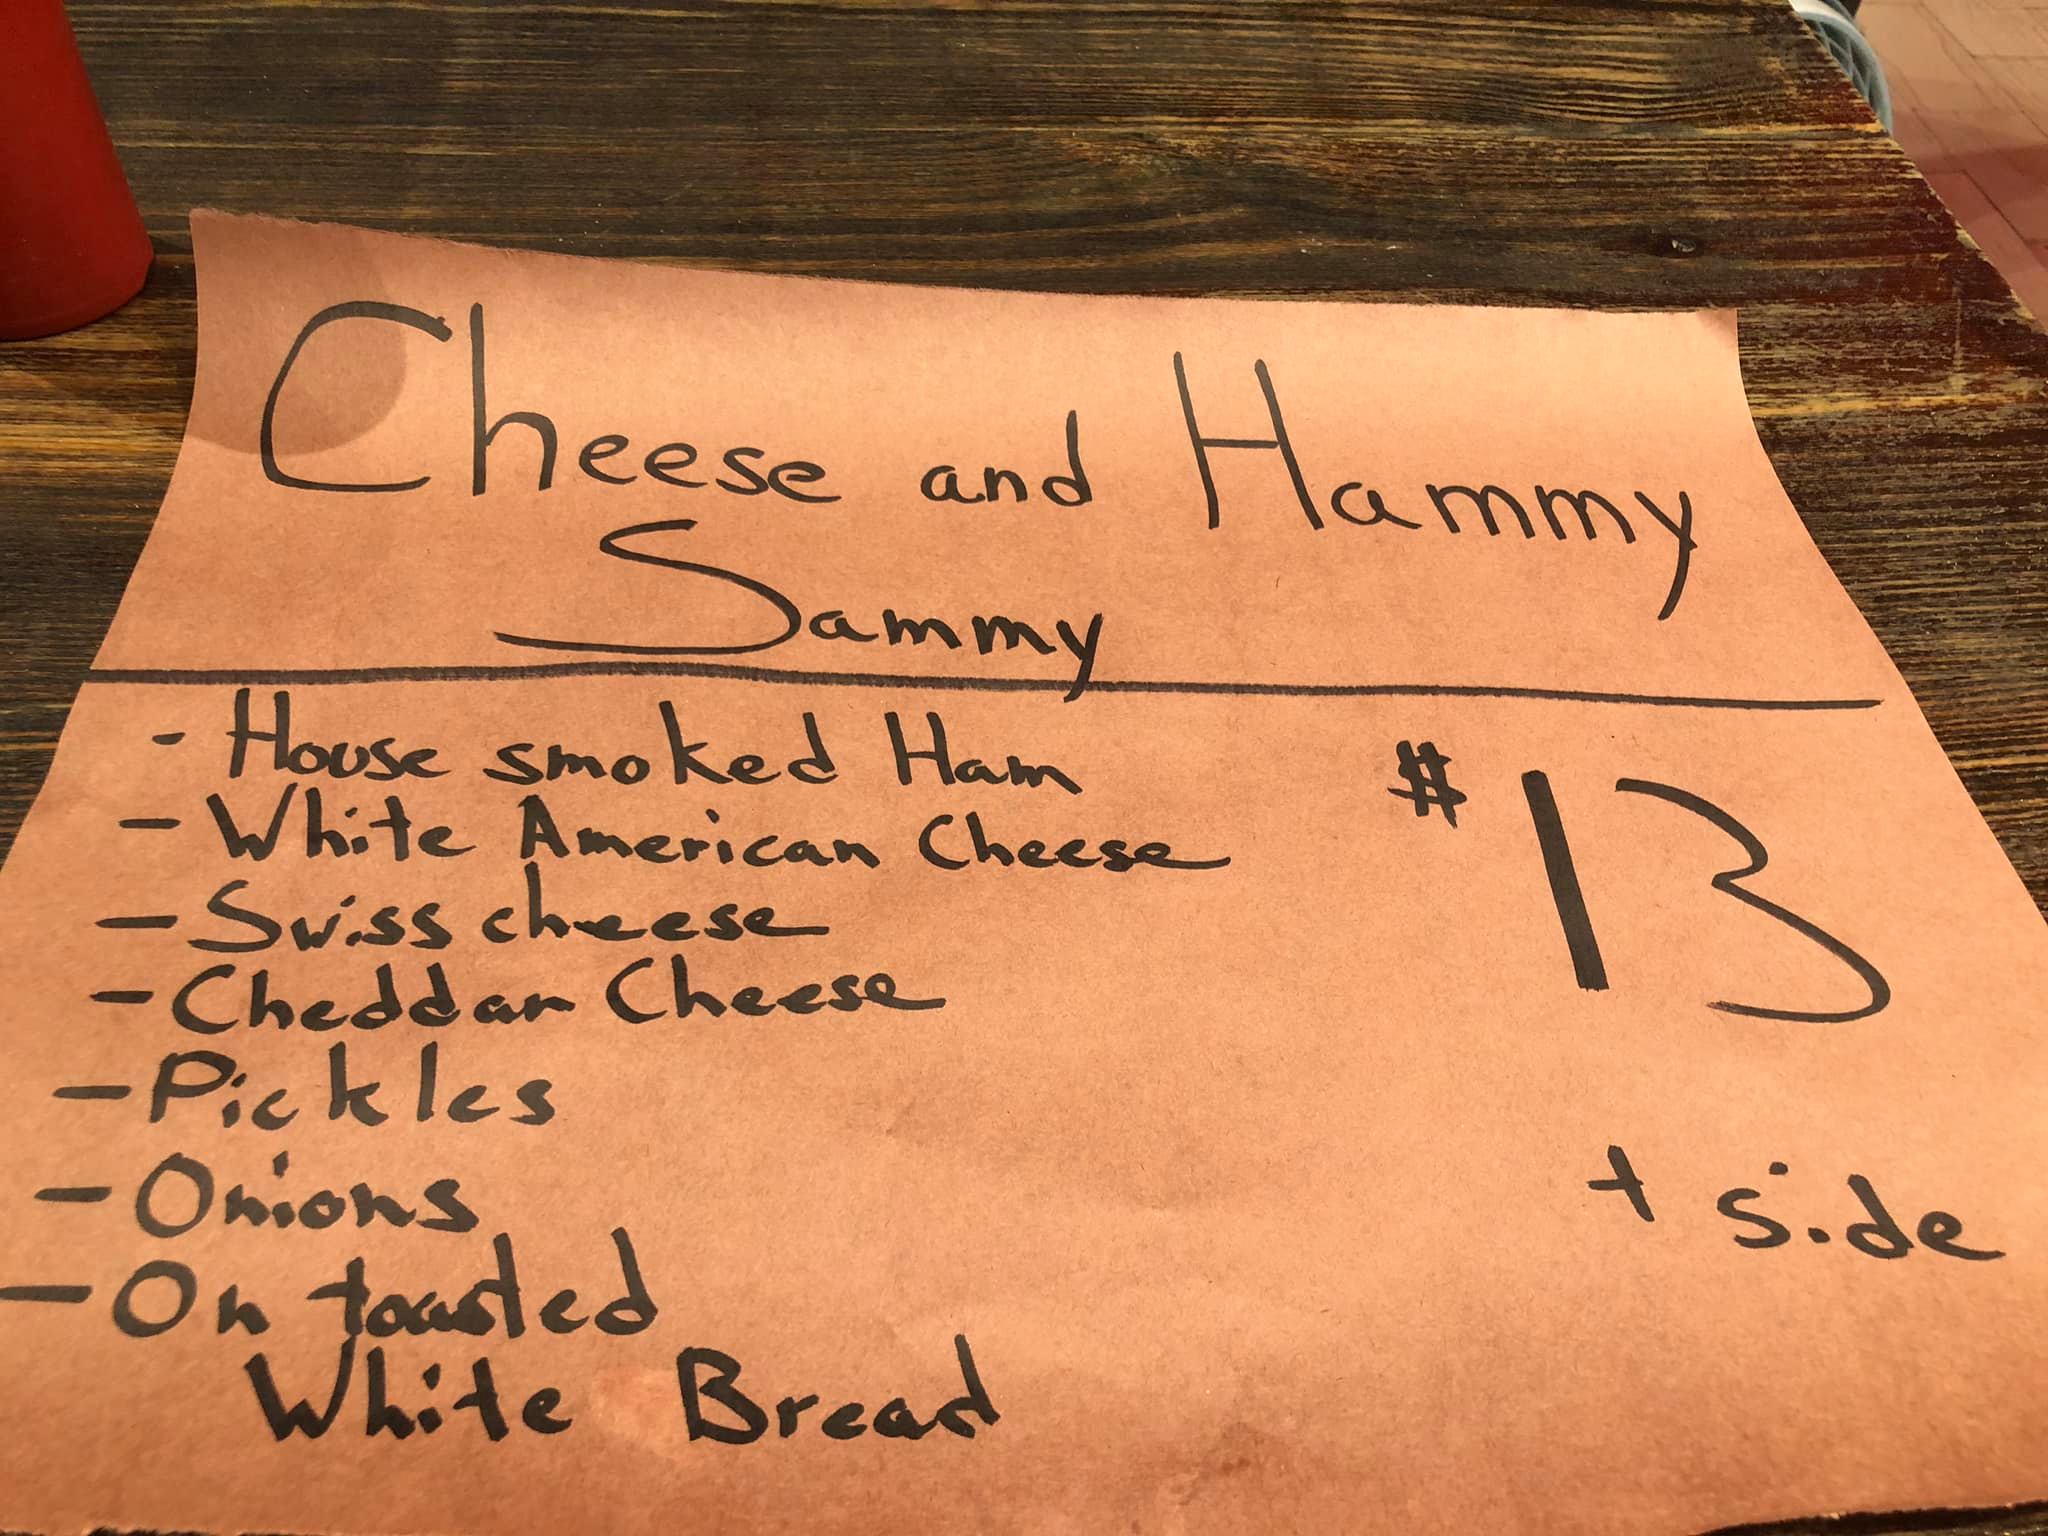 Cheese and Hammy
Sammy
- House smoked Ham
- White American Cheese
- Swiss cheese
- Cheddar Cheese
- Pickles
- Onions
- On toasted
White Bread
$13
+ side